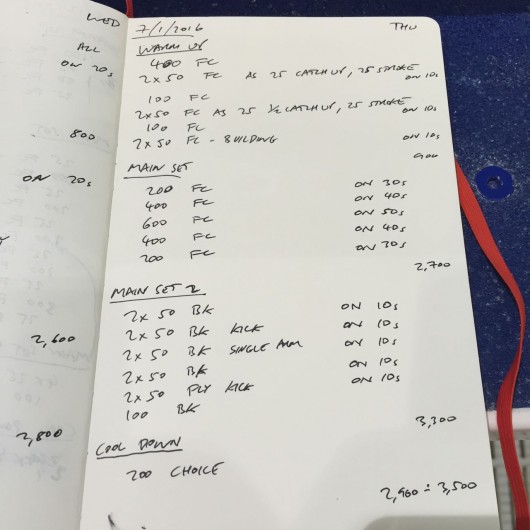 WED
ALL
ON 20s
800
ON 20s
2,600
2,800
7/1/2016 THU
WARM UP
400 FC
2 x 50 FC AS 25 CATCH UP, 25 STROKE ON 10s
100 FC
2x50 FC AS 25 1/2 CATCH UP, 25 STROKE ON 10s
100 FC
2 x 50 FC - BUILDING ON 10s
900
MAIN SET
200 FC ON 30s
400 FC ON 40s
600 FC ON 50s
400 FC ON 40s
200 FC ON 30s
2,700
MAIN SET 2
2 x 50 BK ON 10s
2 x 50 BK KICK ON 10s
2 x 50 BK SINGLE ARM ON 10s
2 x 50 BK ON 10s
2 x 50 FLY KICK ON 10s
100 BK
3,300
COOL DOWN
200 CHOICE
3,500